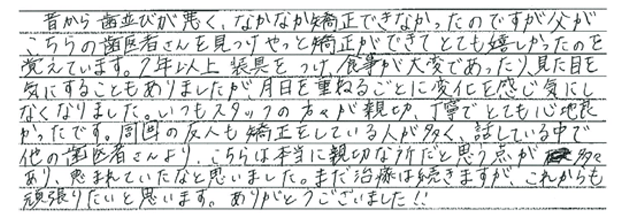 昔から歯並びが悪く、なかなか矯正できなかったのですが父が
こちらの歯医者さんを見つけやっと矯正ができてとても嬉しかったのを
覚えています。2年以上装具をつけ食事が大変であったり、見た目を
気にすることもありましたが、月日を重ねるごとに変化を感じ気にし
なくなりました。いつもスタッフの方々が親切、丁寧でとても心地良
かったです。周囲の友人も矯正をしている人が多く、話している中で
他の歯医者さんより、こちらは本当に親切な所だと思う点が多々
あり、恵まれていたなと思いました。まだ治療は続きますが、これからも
頑張りたいと思います。ありがとうございました!!